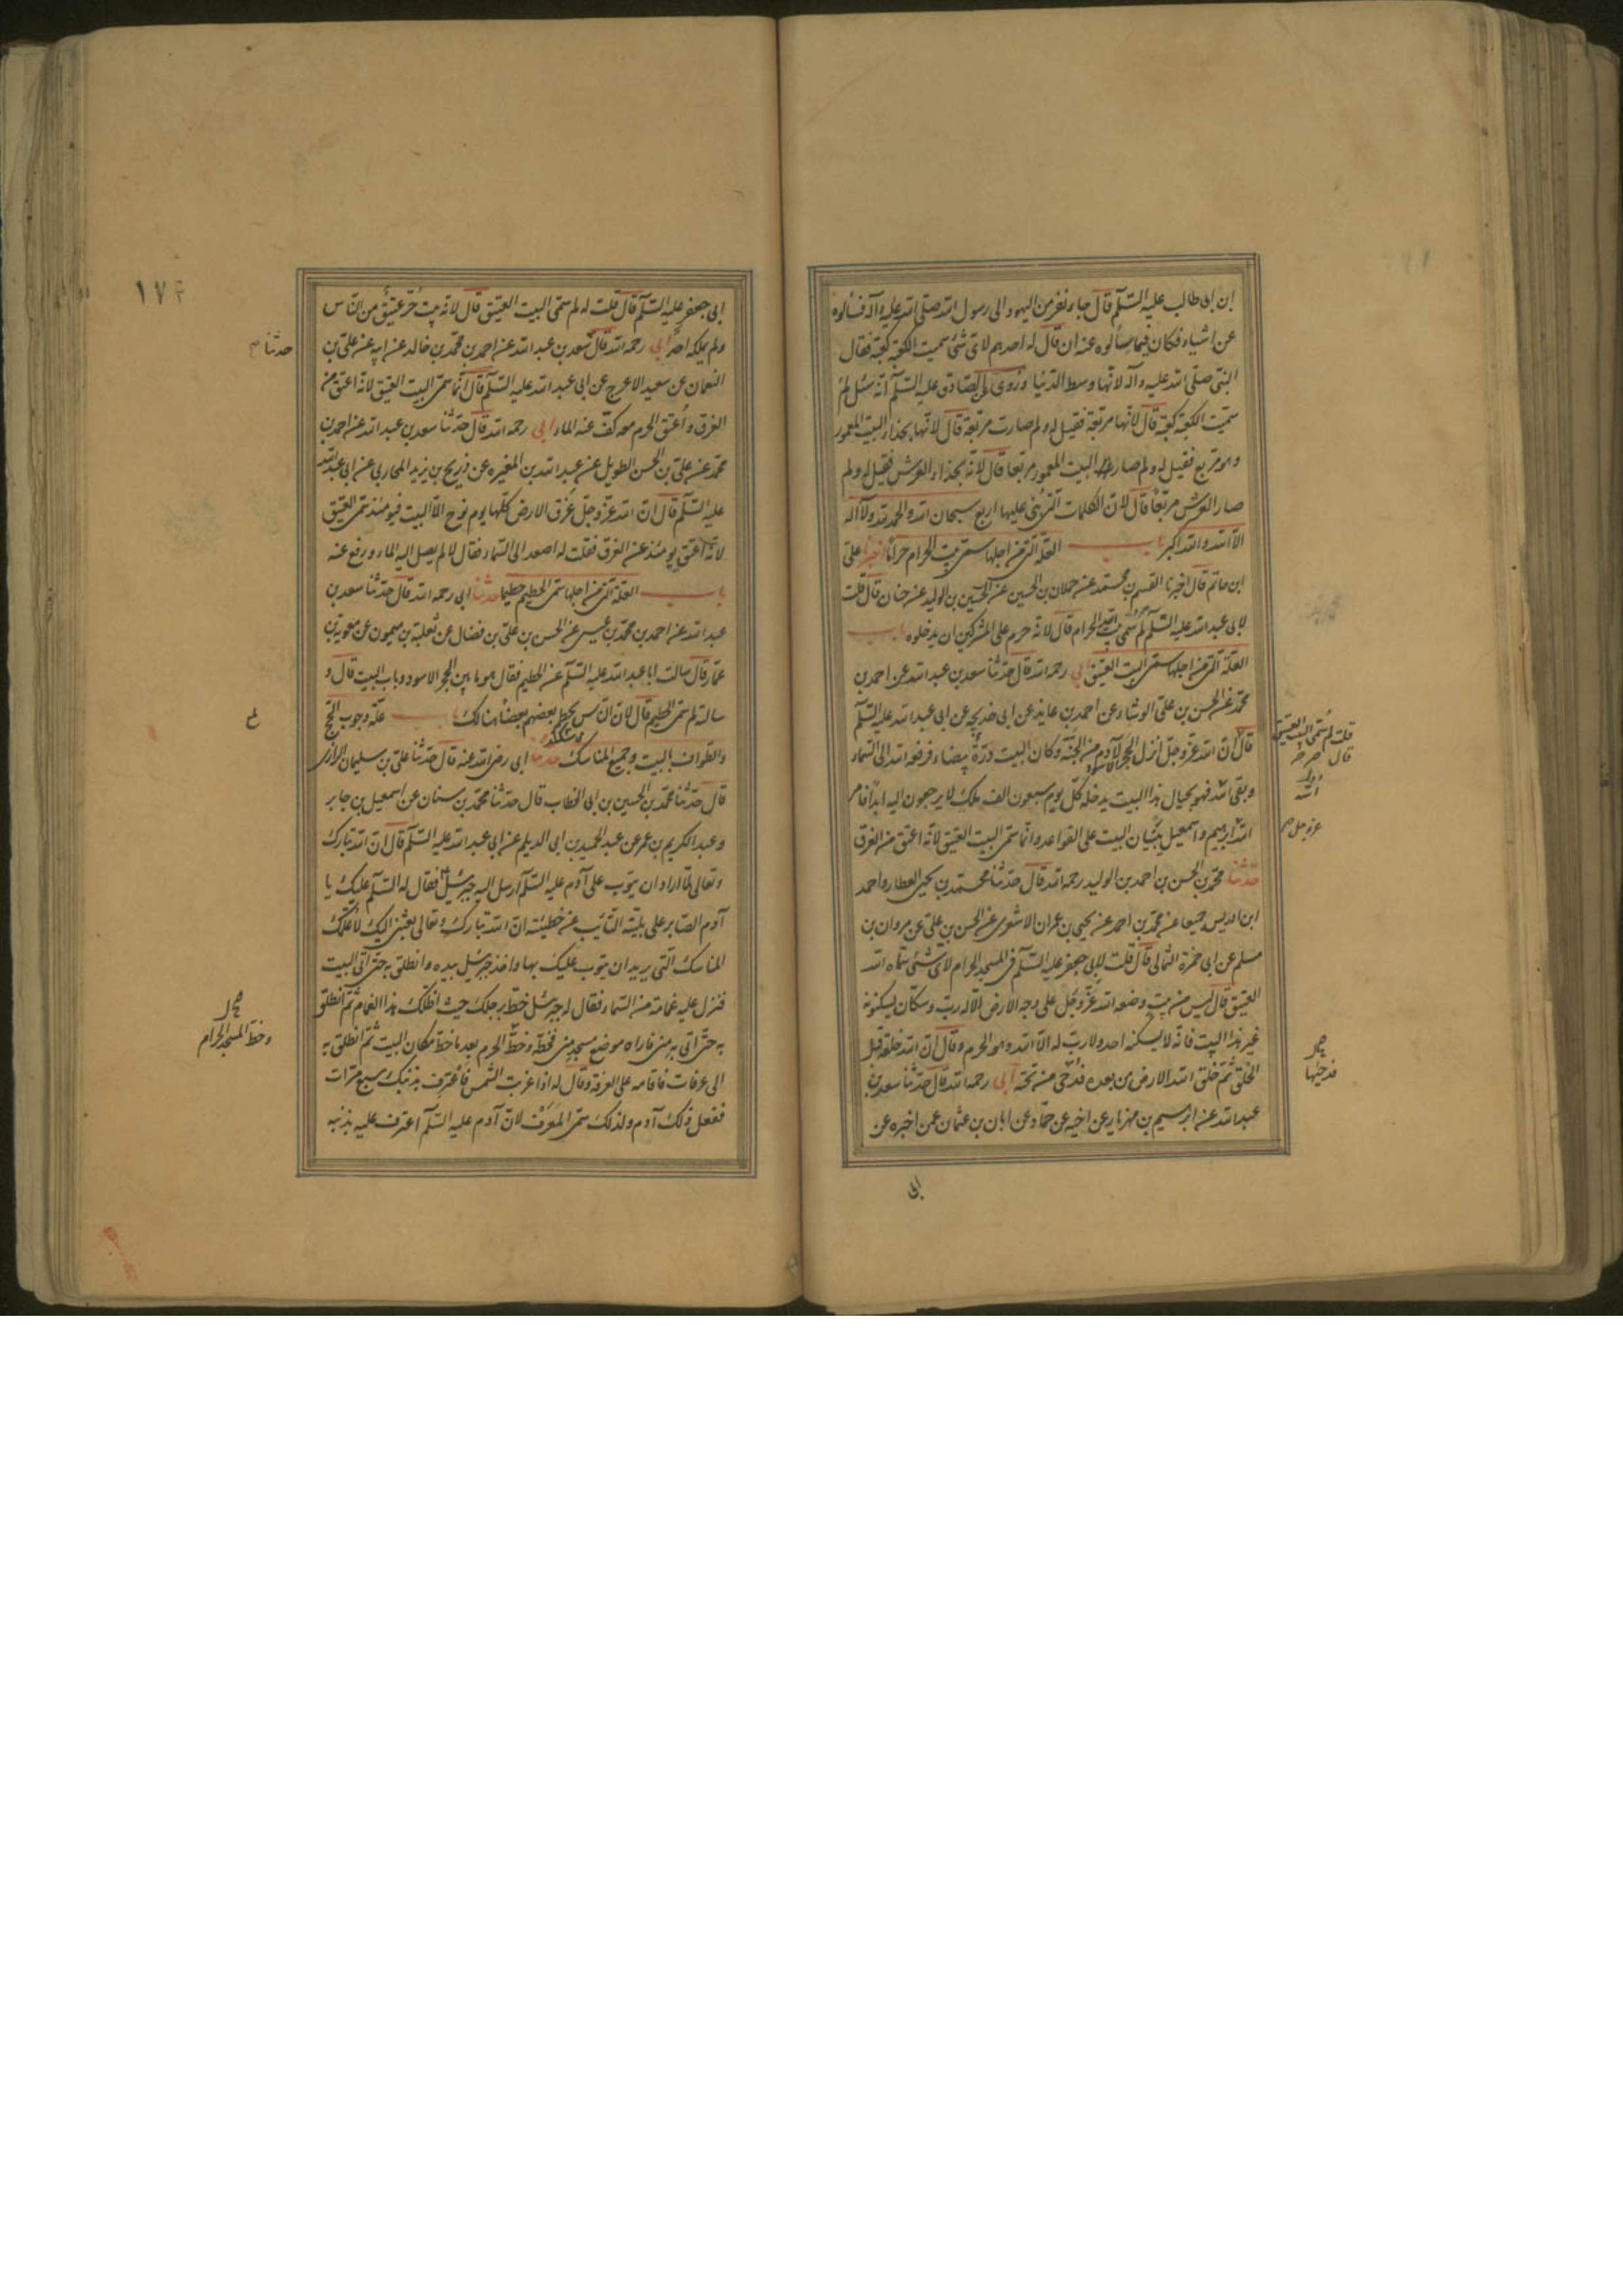 ابن ابی طالب علیه السّلم قال جاء نفر من الیهود الی رسول الله صلّی الله علیه وآله فسألوه
عن اشیاء فکان فیما سألوه عنه ان قال له احدهم لای شئ سمیت الکعبة کعبة فقال
النبی صلّی الله علیه وآله لانّها وسط الدنیا وروی عن الصّادق علیه السّلم انّه سئل لم
سمّیت الکعبة کعبة قال لانّها مربّعة فقیل له ولم صارت مربّعة قال لانّها بحذاء البیت المعمور
وهو مربع فقیل له ولم صار البیت المعمور مربعا قال لانّه بحذاء العرش فقیل له ولم
صار العرش مربّعا قال لانّ الکلمات التی بنی علیها اربع سبحان الله والحمد لله ولا اله
الّا الله والله اکبر باب العلّة التی من اجلها سمّی بیت الحرام حراما اخبرنا علی
ابن حاتم قال اخبرنا القسم بن محمّد عن حمدان بن الحسین عن الحسین بن الولید عن حنان قال قلت
لابی عبد الله علیه السّلم لم سُمّی بیت الله الحرام قال لانّه حرم علی المشرکین ان یدخلوه باب
العلّة التی من اجلها سمّی البیت العتیق ابی رحمه الله قال حدّثنا سعد بن عبد الله عن احمد بن
محمّد عن الحسن بن علی الوشاء عن احمد بن عایذ عن ابی خدیجه عن ابی عبد الله علیه السّلم
قال انّ الله عزّ وجلّ انزل الحجر الاسود لآدم من الجنّة وکان البیت درّة بیضاء فرفعه الله الی السّماء
وبقی اسّه فهو بحیال هذا البیت یدخله کلّ یوم سبعون الف ملک لا یرجعون الیه ابدا فامر
الله ابرهیم واسمعیل ببنیان البیت علی القواعد وانّما سمّی البیت العتیق لانّه اعتق من الغرق
حدّثنا محمّد بن الحسن بن احمد بن الولید رحمه الله قال حدّثنا محمّد بن یحیی العطار واحمد
ابن ادریس جمیعا عن محمّد بن احمد عن یحیی بن عمران الاشعری عن الحسن بن علی عن مروان بن
مسلم عن ابی حمزة الثمالی قال قلت لابی جعفر علیه السّلم فی المسجد الحرام لای شئ سمّاه الله
العتیق قال لیس من بیت وضعه الله عزّ وجلّ علی وجه الارض الّا له ربّ وسکّان یسکنونه
غیر هذا البیت فانّه لا یسکنه احد ولا ربّ له الّا الله وهو الحرم وقال انّ الله خلقه قبل
الخلق ثمّ خلق الله الارض من بعده فدحی من تحته ابی رحمه الله قال حدّثنا سعد بن
عبد الله عن ابرهیم بن مهزیار عن اخیه عن حمّاد عن ابان بن عثمان عمن اخبره عن
ابی
قلت لم سُمّی البیت العتیق
قال
عزوجل
فدحیها
١٧٢
ابی جعفر علیه السّلم قال قلت له لم سمّی البیت العتیق قال لانّه بیت حُرّ عتیق من النّاس
ولم یملکه احد ابی رحمه الله قال سعد بن عبد الله عن احمد بن محمّد بن خالد عن ابیه عن علی بن
النعمان عن سعید الاعرج عن ابی عبد الله علیه السّلم قال انّما سمّی البیت العتیق لانّه اعتق من
الغرق واُعتق الحرم معه کفّ عنه الماء ابی رحمه الله قال حدّثنا سعد بن عبد الله عن احمد بن
محمّد عن علی بن الحسن الطویل عن عبد الله بن المغیره عن ذریح بن یزید المحاربی عن ابی عبد الله
علیه السّلم قال انّ الله عزّ وجلّ غرّق الارض کلّها یوم نوح الّا البیت فیومئذ سمّی العتیق
لانّه اُعتق یومئذ عن الغرق فقلت له اصعد الی السّماء فقال لا لم یصل الیه الماء ورفع عنه
باب العلّة التی من اجلها سمّی الحطیم حطیما حدّثنا ابی رحمه الله قال حدّثنا سعد بن
عبد الله عن احمد بن محمّد بن عیسی عن الحسن بن علی بن فضال عن ثعلبة بن میمون عن معویة بن
عمّار قال سالت ابا عبد الله علیه السّلم عن الحطیم فقال هو ما بین الحجر الاسود وباب البیت قال و
سالته لم سمّی الحطیم قال لانّ النّاس یحطم بعضهم بعضا هنالک باب علّة وجوب الحجّ
والطّواف بالبیت وجمیع المناسک حدثنا ابی رضی الله عنه قال حدّثنا علی بن سلیمان الرازی
قال حدّثنا محمّد بن الحسین بن ابی الخطاب قال حدّثنا محمّد بن سنان عن اسمعیل بن جابر
وعبد الکریم بن عمر عن عبد الحمید بن ابی الدیلم عن ابی عبد الله علیه السّلم قال انّ الله تبارک
وتعالی لمّا اراد ان یتوب علی آدم علیه السّلم ارسل الیه جبرئیل فقال له السّلم علیک یا
آدم الصّابر علی بلیّته التّایب عن خطیئته انّ الله تبارک وتعالی بعثنی الیک لاُعلّمک
المناسک التی یرید ان یتوب علیک بها واخذ جبرئیل بیده وانطلق به حتّی اتی البیت
فنزل علیه غمامة من السّماء فقال له جبرئیل خطّ برجلک حیث اظلّک هذا الغمام ثمّ انطلق
به حتّی اتی به منی فاراه موضع مسجد منی فخطّه وخطّ الحرم بعد ما خطّ مکان البیت ثمّ انطلق به
الی عرفات فاقامه علی العرفة وقال له اذا غربت الشّمس فاعترف بذنبک سبع مرّات
ففعل ذلک آدم ولذلک سمّی المعرّف لانّ آدم علیه السّلم اعترف علیه بذنبه
حدّثنا
وخطّ المسجد الحرام